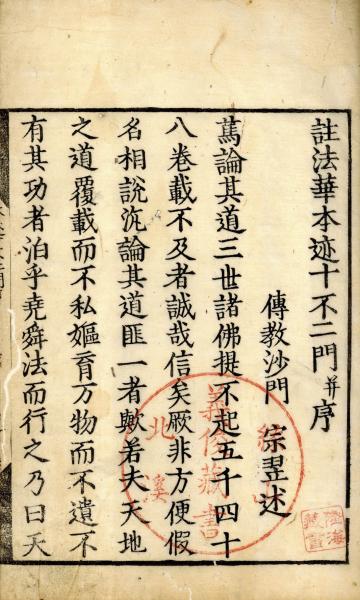 註法華本迹十不二門并序
傳教沙門 宗翌述
蔿論其道三世諸佛提不起五千四十
八卷載不及者誠哉信矣厥非方便假
名相說沉論其道匪一者歟若夫天地
之道覆載而不私嫗育万物而不遺不
有其功者洎乎堯舜法而行之乃曰天
北溪
義俊藏書